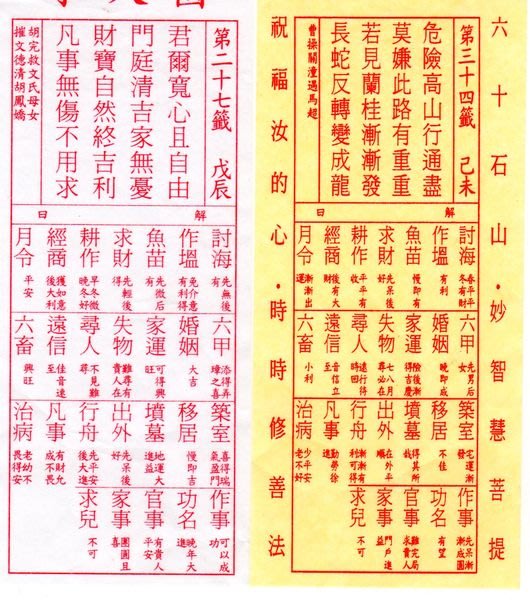 六十石山·妙智慧菩提
第三十四籤 己未
危險高山行通盡
莫嫌此路有重重
若見蘭桂漸漸發
長蛇反轉變成龍
曹操關潼遇馬超
解曰
討海 春平平冬有財
作塭 有利
魚苗 慢即有
求財 先呆後好
耕作 平平有收
經商 後有大財
月令 漸漸出運
六甲 先男后女
婚姻 晚即成
家運 險後漸得吉慶
失物 七八月尋必在
尋人 遠行待時回
遠信 音信立至
六畜 小利
築室 宅運漸發
移居 不佳
墳墓 得其所哉
出外 在外平順
行舟 漸漸有利可得
凡事 勤勞徐進
治病 少平安老不好
作事 先呆漸漸成圓
功名 有望
官事 難完局求貴人
家事 門戶進益
求兒 不可
祝福汝的心·時時修善法
第二十七籤 戊辰
君爾寬心且自由
門庭清吉家無憂
財寶自然終吉利
凡事無傷不用求
胡完救文氏母女
摧文德清胡鳳嬌
解曰
討海 先無後有
作塭 免介意有利得
魚苗 先微后有
求財 先輕後得
耕作 早冬微晚冬好
經商 獲如意後大利
月令 平安
六甲 添得弄璋之喜
婚姻 大吉
家運 可得興旺
失物 難尋有貴人在
尋人 不見難尋
遠信 佳音速至
六畜 興旺
築室 喜得瑞氣盈門
移居 慢即吉
墳墓 地運大進益
出外 先呆後好
行舟 先平安後大進
凡事 有財允成不畏
治病 老幼不畏得安
作事 可以成功
功名 晚年大進
官事 有貴人平安
家事 團圓且喜
求兒 不可